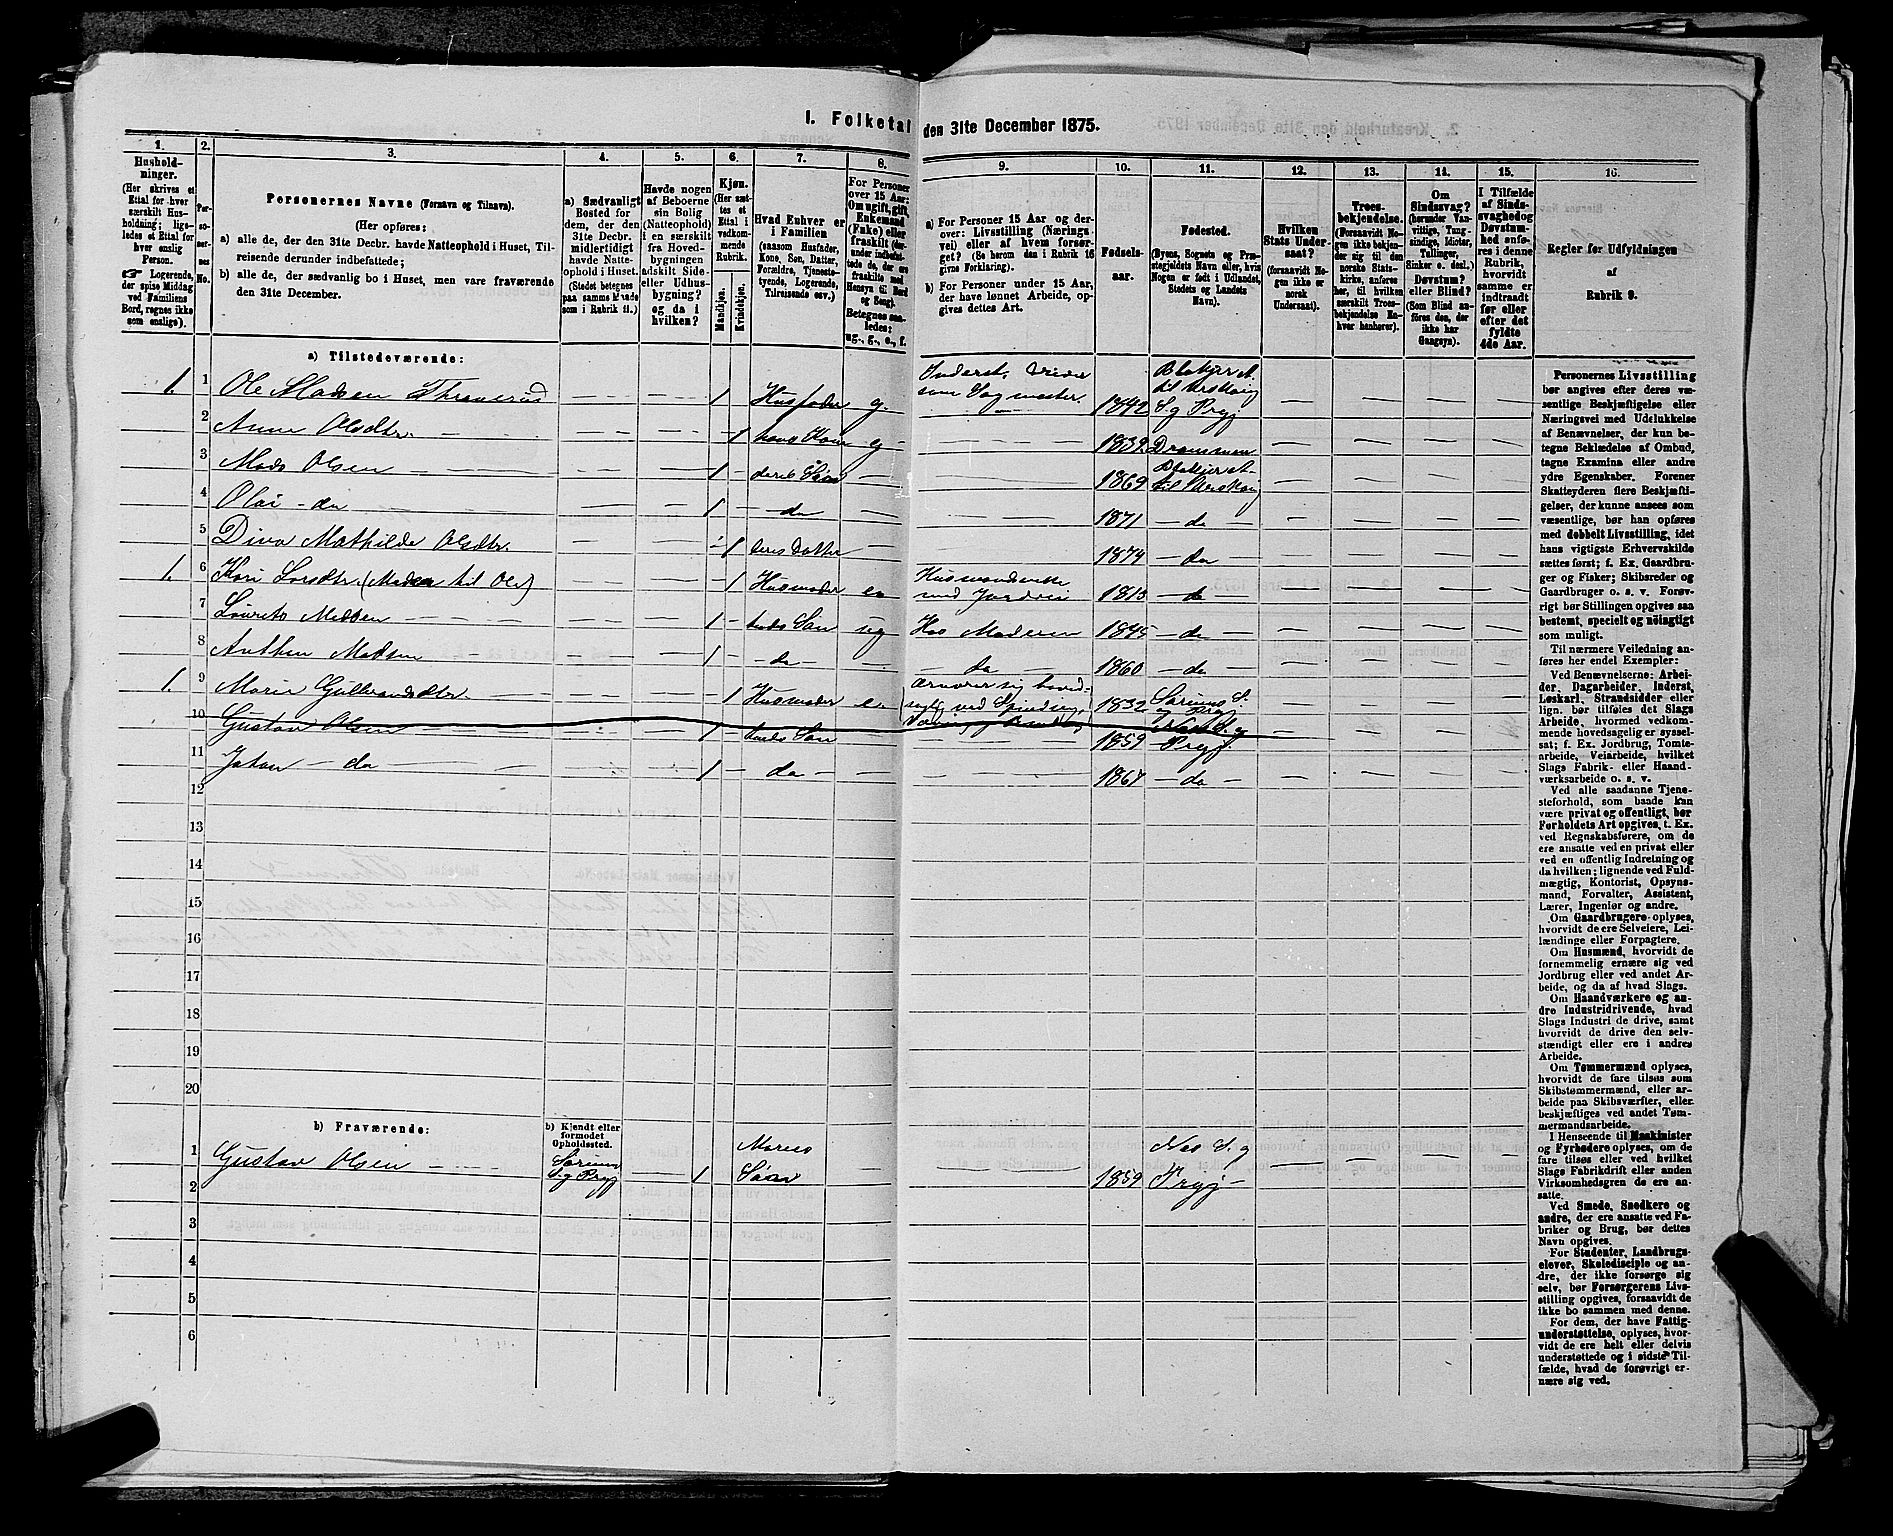 I. Folketal den 31te December 1875.
1. 2. 3. 4. 5. 6. 7. 8. 9. 10. 11. 12. 13. 14. 15. 16.
Hushold-
ninger.
(Her skrives et
Ettal for hver
særskilt Hus-
holdning; lige-
ledes et Ettal for
hver enslig
Person.
☞ Logerende,
der spise Middag
ved Familiens
Bord, regnes ikke
som enslige).
Per-
so-
ner-
nes
No.
Personernes Navne (Fornavn og Tilnavn).
(Her opføres:
a) alle de, der den 31te Decbr. havde Natteophold i Huset, Til-
reisende derunder indbefattede;
b) alle de, der sædvanlig bo i Huset, men vare fraværende
den 31te December.
a) Sædvanligt
Bosted for
dem, der den
31te Decbr.
midlertidigt
havde Natte-
ophold i Huset.
(Stedet betegnes
paa samme Maade
som i Rubrik 11.)
Havde nogen
af Beboerne
sin Bolig
(Natteophold)
i en særskilt
fra Hoved-
bygningen
adskilt Side-
eller Udhus-
bygning?
og da i
hvilken?
Kjøn.
(Her sæt-
tes et
Ettal i
vedkom-
mende
Rubrik.
Mandkjøn.
Kvindekjøn.
Hvad Enhver er
i Familien
(saasom Husfader,
Kone, Søn, Datter,
Forældre, Tjeneste-
tyende, Logerende,
Tilreisende osv.)
For Personer
over 15 Aar:
Om ugift, gift,
Enkemand
(Enke) eller
fraskilt (der-
under indbefat-
tede de, der ere
fraskilte med
Hensyn til Bord
og Seng).
Betegnes saa-
ledes:
ug., g., e., f.
a) For Personer 15 Aar og der-
over: Livsstilling (Nærings-
vei) eller af hvem forsør-
get? (Se herom den i Rubrik 16
givne Forklaring).
b) For Personer under 15 Aar,
der have lønnet Arbeide, op-
gives dettes Art.
Fødsels-
aar.
Fødested.
(Byens, Sognets og Præ-
stegjeldets Navn, eller, hvis
Nogen er født i Udlandet,
Stedets og Landets
Navn).
Hvilken
Stats Under-
saat?
(forsaavidt No-
gen ikke er
norsk
Undersaat).
Troes-
bekjendelse.
(Forsaavidt No-
gen ikke bekjen-
der sig til den
norske Stats-
kirke, anføres
her, til hvilken
særskilt Troes-
bekjendelse En-
hver henhører).
Om
Sindssvag?
(herunder Van-
vittige, Tung-
sindige, Idioter,
Tullinger,
Sinker o. desl.)
Døvstum?
eller Blind?
(Som Blind an-
føres den, der
ikke har
Gangsyn).
I Tilfælde
af Sinds-
svaghed og
Døvstum-
hed anfø-
res i denne
Rubrik,
hvorvidt
samme er
indtraadt
før eller
efter det
fyldte
4de Aar.
Regler for Udfyldningen
af
Rubrik 9.
a) Tilstedeværende:
1. 1 Ole Madsen Thronerud 1 Husfader g. Inderst, som Sagmester. 1842 S. g Prgj
2 Anne Olsdtr. 1 hans Kone g 1839 Drammen
3 Mads Olsen 1 deres Søn 1869
4 Olai - do 1 do 1871 do
5 Dina Mathilde Olsdtr. 1 deres Datter 1874 do
1. 6 Kari Larsdtr. (Moder til Ole) 1 Husmoder e Husmandsenke med Jordvei 1813 do
7 Laurits Madsen 1 hends Søn ug Hos Moderen 1845 do
8 Anthon Madsen 1 do do 1860 do
1. 9 Marie Gulbrandsdtr. 1 Husmoder e Ernærer sig hoved- ved Spinding, 1832 Sørums S. og Prgj
10 Gustav Olsen 1 hends Søn 1859 Næs S. g Prgj.
11 Johan - do 1 do 1867 do
12
13
14
15
16
17
18
19
20
b) Fraværende:
b) Kjendt eller
formodet
Opholdssted.
1 Gustav Olsen Sørum S. g Prgj 1 Maries Søn 1859 Næs S. g Prgj
2
3
4
5
6
Personernes Livsstilling
bør angives efter deres væ-
sentlige Beskjæftigelse eller
Næringsvei med Udelukkelse
af Benævnelser, der kun be-
tegne Beklædelse af Ombud,
tagne Examina eller andre
ydre Egenskaber. Forener
Skatteyderen flere Beskjæfti-
gelser, der kunne ansees som
væsentlige, bør han opføres
med dobbelt Livsstilling, idet
hans vigtigste Erhvervskilde
sættes først; f. Ex. Gaardbru-
ger og Fisker; Skibsreder og
Gaardbruger o. s. v. Forøv-
rigt bør Stillingen opgives saa
bestemt, specielt og nøiagtigt
som muligt.
Til nærmere Veiledning an-
føres her endel Exempler:
Ved Benævnelserne: Arbei-
der, Dagarbeider, Inderst,
Løskarl, Strandsidder eller
lign. bør tilføies det Slags
Arbeide, hvormed vedkom-
mende hovedsagelig er syssel-
sat; f. Ex. Jordbrug, Tomte-
arbeide, Veiarbeide, hvilket
Slags Fabrik- eller Haand-
værksarbeide o. s. v.
Ved alle saadanne Tjene-
steforhold, som baade kan
være privat og offentligt, bør
Forholdets Art opgives, t. Ex.
ved Regnskabsførere, om de
ere ansatte ved en privat eller
ved en offentlig Indretning og
da hvilken; lignende ved Fuld-
mægtig, Kontorist, Opsyns-
mand, Forvalter, Assistent,
Lærer, Ingeniør og andre.
Om Gaardbrugere oplyses,
hvorvidt de ere Selveiere, Lei-
lændinge eller Forpagtere.
Om Husmænd, hvorvidt de
fornemmelig ernære sig ved
Jordbrug eller ved andet Ar-
beide, og da af hvad Slags.
Om Haandværkere og an-
dre Industridrivende, hvad
Slags Industri de drive, samt
hvorvidt de drive den selv-
stændigt eller ere i andres
Arbeide.
Om Tømmermænd oplyses,
hvorvidt de fare tilsøs som
Skibstømmermænd, eller ar-
beide paa Skibsværfter, eller
beskjæftiges ved andet Tøm-
mermandsarbeide.
I Henseende til Maskinister
og Fyrbødere oplyses, om de
fare tilsøs eller ved hvilket
Slags Fabrikdrift eller anden
Virksomhedsgren de ere an-
satte.
Ved Smede, Snedkere og
andre, der ere ansatte ved Fa-
briker og Brug, bør dettes
Navn opgives.
For Studenter, Landbrugs-
elever, Skoledisciple og an-
dre, der ikke forsørge sig
selv, bør Forsørgerens Livs-
stilling opgives, forsaavidt de
ikke bo sammen med denne.
For dem, der have Fattig-
understøttelse, oplyses, hvor-
vidt de ere helt eller delvis
understøttede og i sidste Til-
fælde, hvad de forøvrigt er-
nære sig ved.